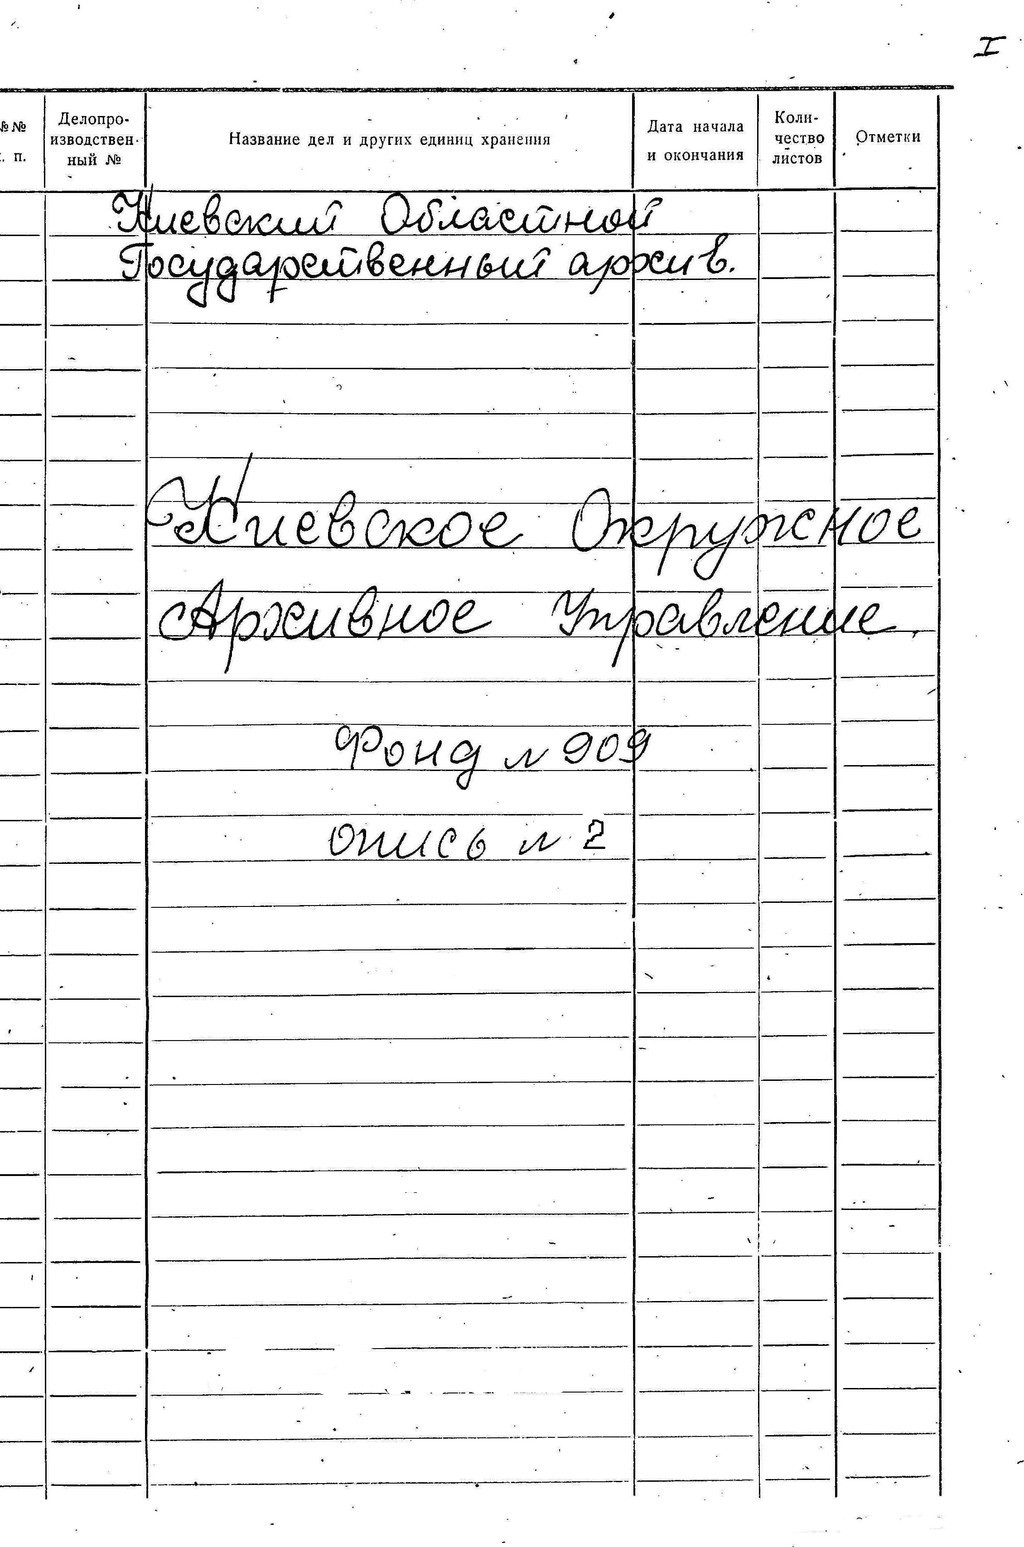 I
№№
. п.
Делопро-
изводствен-
ный №
Название дел и других единиц хранения
Дата начала
и окончания
Коли-
чество
листов
Отметки
Киевский Областной
Государственный архив.
Киевское Окружное
Архивное Управление.
Фонд № 909
опись № 2